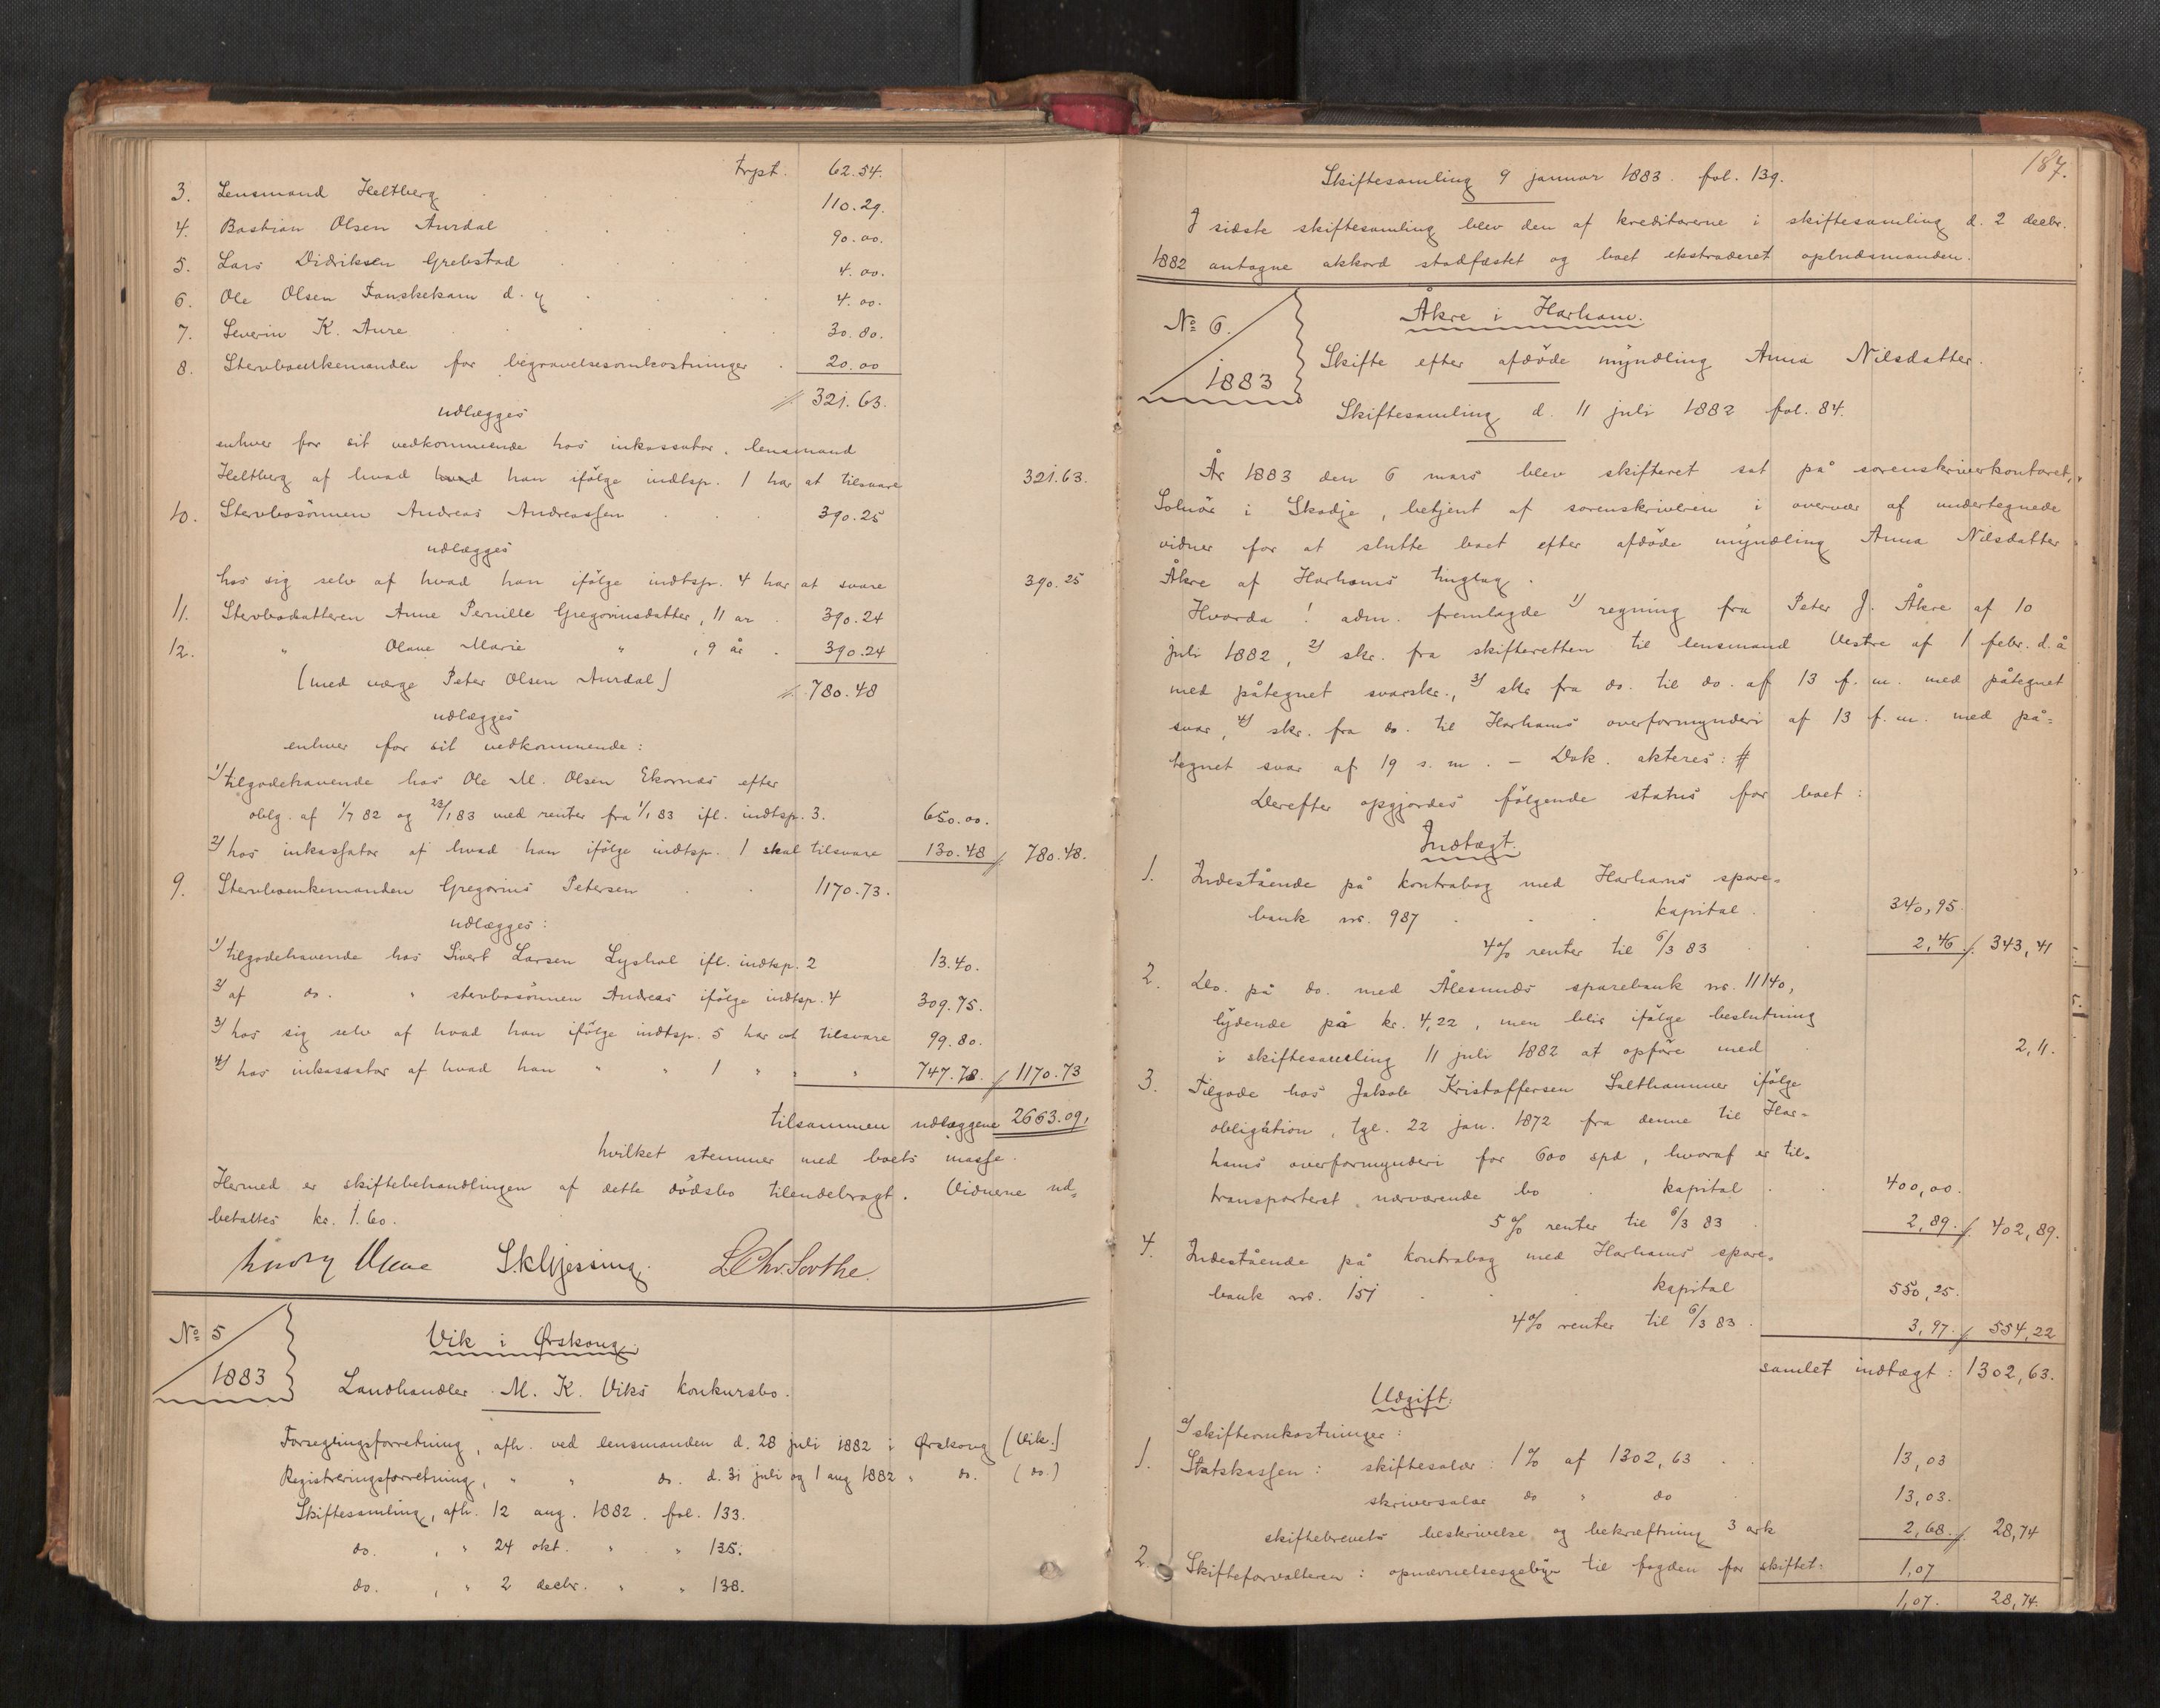 trspt. 62.54.
3. Lensmand Heltberg 110.29.
4. Bastian Olsen Aurdal 90.00.
5. Lars Didriksen Grebstad 4.00.
6. Ole Olsen Fauskekam d. y 4.00.
7. Severin K. Aure 30.80.
8. Stervboenkemanden for begravelsesomkostninger 20.00
// 321.63.
udlægges
enhver for sit vedkommende hos inkassator, lensmand
Heltberg af hvad hvad han ifölge indtsp. 1 har at tilsvare 321.63.
10. Stervbosönnen Andreas Andreassen 390.25
udlægges
hos sig selv af hvad han ifölge indtsp. 4 har at svare 390.25
11. Stervbodatteren Anne Pernille Gregoriusdatter, 11 år 390.24
12. " Olave Marie " , 9 år 390.24
(med værge Peter Olsen Aurdal) // 780.48
udlægges
enhver for sit vedkommende:
1) tilgodehavende hos Ole M. Olsen Ekornæs efter
oblg. af 1/7 82 og 23/1 83 med renter fra 1/1 83 ifl. indtsp. 3. 650.00.
2) hos inkassator af hvad han ifölge indtsp. 1 skal tilsvare 130.48 // 780.48.
9. Stervboenkemanden Gregorius Petersen 1170.73.
udlægges:
1) tilgodehavende hos Sivert Larsen Lyshol ifl. indtsp. 2 13.40.
2) af do. " stervbosönnen Andreas ifölge indtsp. 4 309.75.
3) hos sig selv af hvad han ifölge indtsp. 5 har at tilsvare 99.80.
4) hos inkassator af hvad han " " 1 " " " 747.78. // 1170.73
tilsammen udlæggene 2663.09,
hvilket stemmer med boets masse.
Hermed er skiftebehandlingen af dette dödsbo tilendebragt. Vidnerne ud-
betaltes kr. 1.60.
L. Chr. Sorthe.
No 5
1883
Vik i Ørskoug.
Landhandler M. K. Viks konkursbo.
Forseglingsforretning, afh. ved lensmanden d. 28 juli 1882 i Ørskoug (Vik.)
Registreringsforretning, " " do. d. 31 juli og 1 aug 1882 " do. (do.)
Skiftesamling, afh. 12 aug. 1882. fol. 133.
do. , " 24 okt. " " 135.
do. , " 2 decbr. " " 138.
187.
Skiftesamling 9 januar 1883. fol. 139.
I sidste skiftesamling blev den af kreditorerne i skiftesamling d. 2 decbr.
1882 antagne akkord stadfæstet og boet ekstraderet opbudsmanden.
No 6.
1883
Åkre i Harham.
Skifte efter afdöde myndling Anna Nilsdatter.
Skiftesamling d. 11 juli 1882 fol. 84.
År 1883 den 6 mars blev skifteret sat på sorenskriverkontoret,
Solnör i Skodje, betjent af sorenskriveren i overvær af undertegnede
vidner for at slutte boet efter afdöde myndling Anna Nilsdatter
Åkre af Harhams tinglag.
Hvorda! adm. fremlagde 1) regning fra Peter J. Åkre af 10
juli 1882, 2) skr. fra skifteretten til lensmand Vestre af 1 febr. d. å
med påtegnet svarskr., 3) skr fra do. til do. af 13 f. m. med påtegnet
svar, 4) skr. fra do. til Harhams overformynderi af 13 f. m. med på-
tegnet svar af 19 s. m. – Dok. akteres: #
Derefter opgjordes fölgende status for boet:
Indtægt.
1. Indestående på kontrabog med Harhams spare-
bank nr. 987 kapital 340,95.
4% renter til 6/3 83 2,46 // 343,41
2. Do. på do. med Ålesunds sparebank nr. 11140,
lydende på kr. 4,22, men blir ifölge beslutning
i skiftesamling 11 juli 1882 at opföre med 2,11.
3. Tilgode hos Jakob Kristoffersen Salthammer ifölge
obligation, tgl. 22 jan. 1872 fra denne til Har-
hams overformynderi for 600 spd, hvoraf er til-
transporteret nærværende bo kapital 400,00.
5% renter til 6/3 83 2,89. // 402,89.
4. Indestående på kontrabog med Harhams spare-
bank nr. 151 kapital 550,25.
4% renter til 6/3 83 3,97. // 554,22
samlet indtægt: 1302,63.
Udgift.
a) skifteomkostninger:
1. Statskassen: skiftesalær: 1% af 1302,63 13,03
skriversalær do " do 13,03.
skiftebrevets beskrivelse og bekræftning 3 ark 2,68. // 28,74
2. Skifteforvalteren: opnævnelsesgebyr til fogden for skiftet: 1,07
1,07. 28,74.